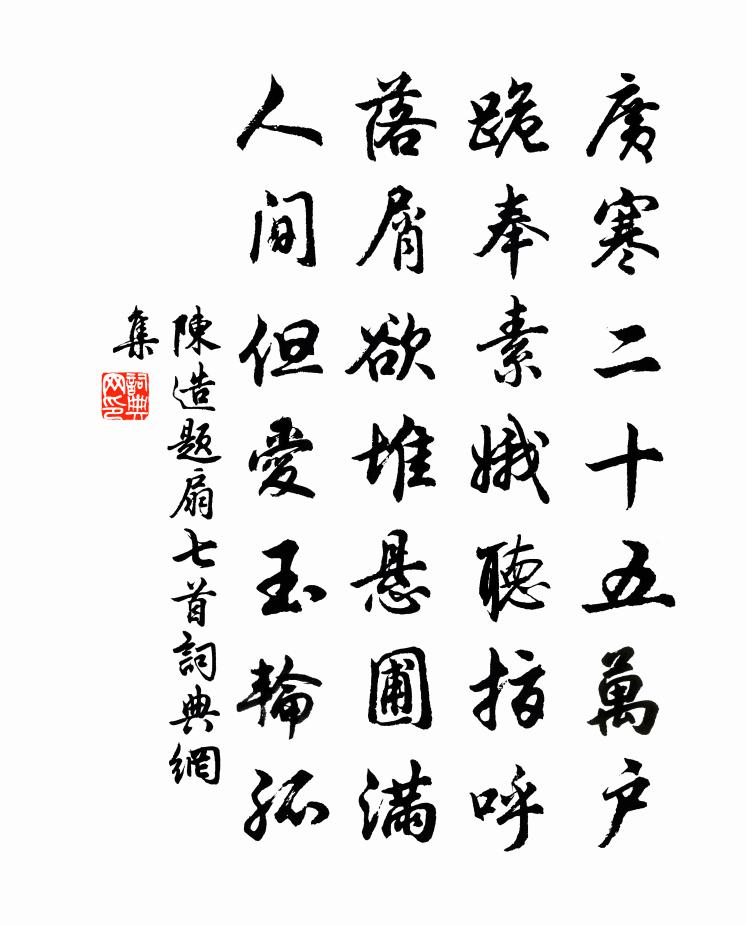 廣寒二十五萬戶
跪奉素娥聽指呼
落屑欲堆懸圃滿
人間但愛玉輪孤
陳造題扇七首詞典網
集
詞典
网印